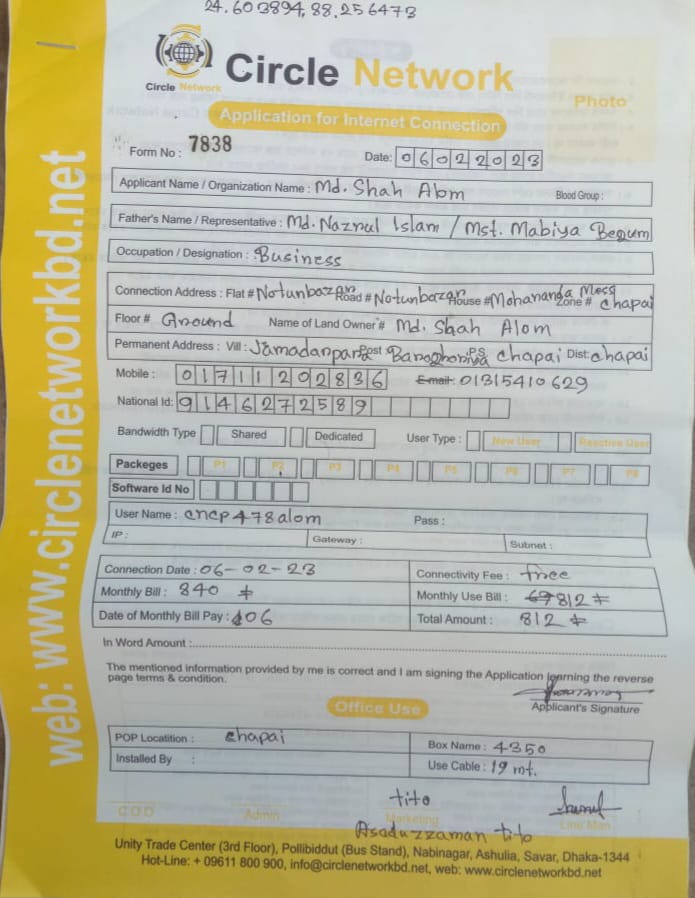 24.603894, 88.256473
Circle Network
Circle Network
Photo
Application for Internet Connection
Form No : 7838
Date: 06022023
Applicant Name / Organization Name : Md. Shah Alom
Blood Group :
Father's Name / Representative : Md. Nazrul Islam / Mst. Mabiya Begum
Occupation / Designation : Business
Connection Address : Flat # Notunbazar Road # Notunbazar House # Mohananda Mess Zone # chapai
Floor # Ground Name of Land Owner # Md. Shah Alom
Permanent Address : Vill : Jamadarpara Post : Baroghoriya P.S chapai Dist: chapai
Mobile : 01711202836 E-mail: 01315410629
National Id: 9146272589
Bandwidth Type Shared Dedicated User Type : New User Reactive User
Packeges P1 P2 P3 P4 P5 P6 P7 P8
Software Id No
User Name : cncp478alom Pass :
IP : Gateway : Subnet :
Connection Date : 06-02-23 Connectivity Fee : free
Monthly Bill : 840 Monthly Use Bill : 812
Date of Monthly Bill Pay : 06 Total Amount : 812
In Word Amount :
The mentioned information provided by me is correct and I am signing the Application learning the reverse
page terms & condition.
Applicant's Signature
Office Use
POP Locatition : chapai Box Name : 4350
Installed By : Use Cable : 19 mt.
tito
C O O Admin Marketing Line Man
Asaduzzaman tito
Unity Trade Center (3rd Floor), Pollibiddut (Bus Stand), Nabinagar, Ashulia, Savar, Dhaka-1344
Hot-Line: + 09611 800 900, info@circlenetworkbd.net, web: www.circlenetworkbd.net
web: www.circlenetworkbd.net